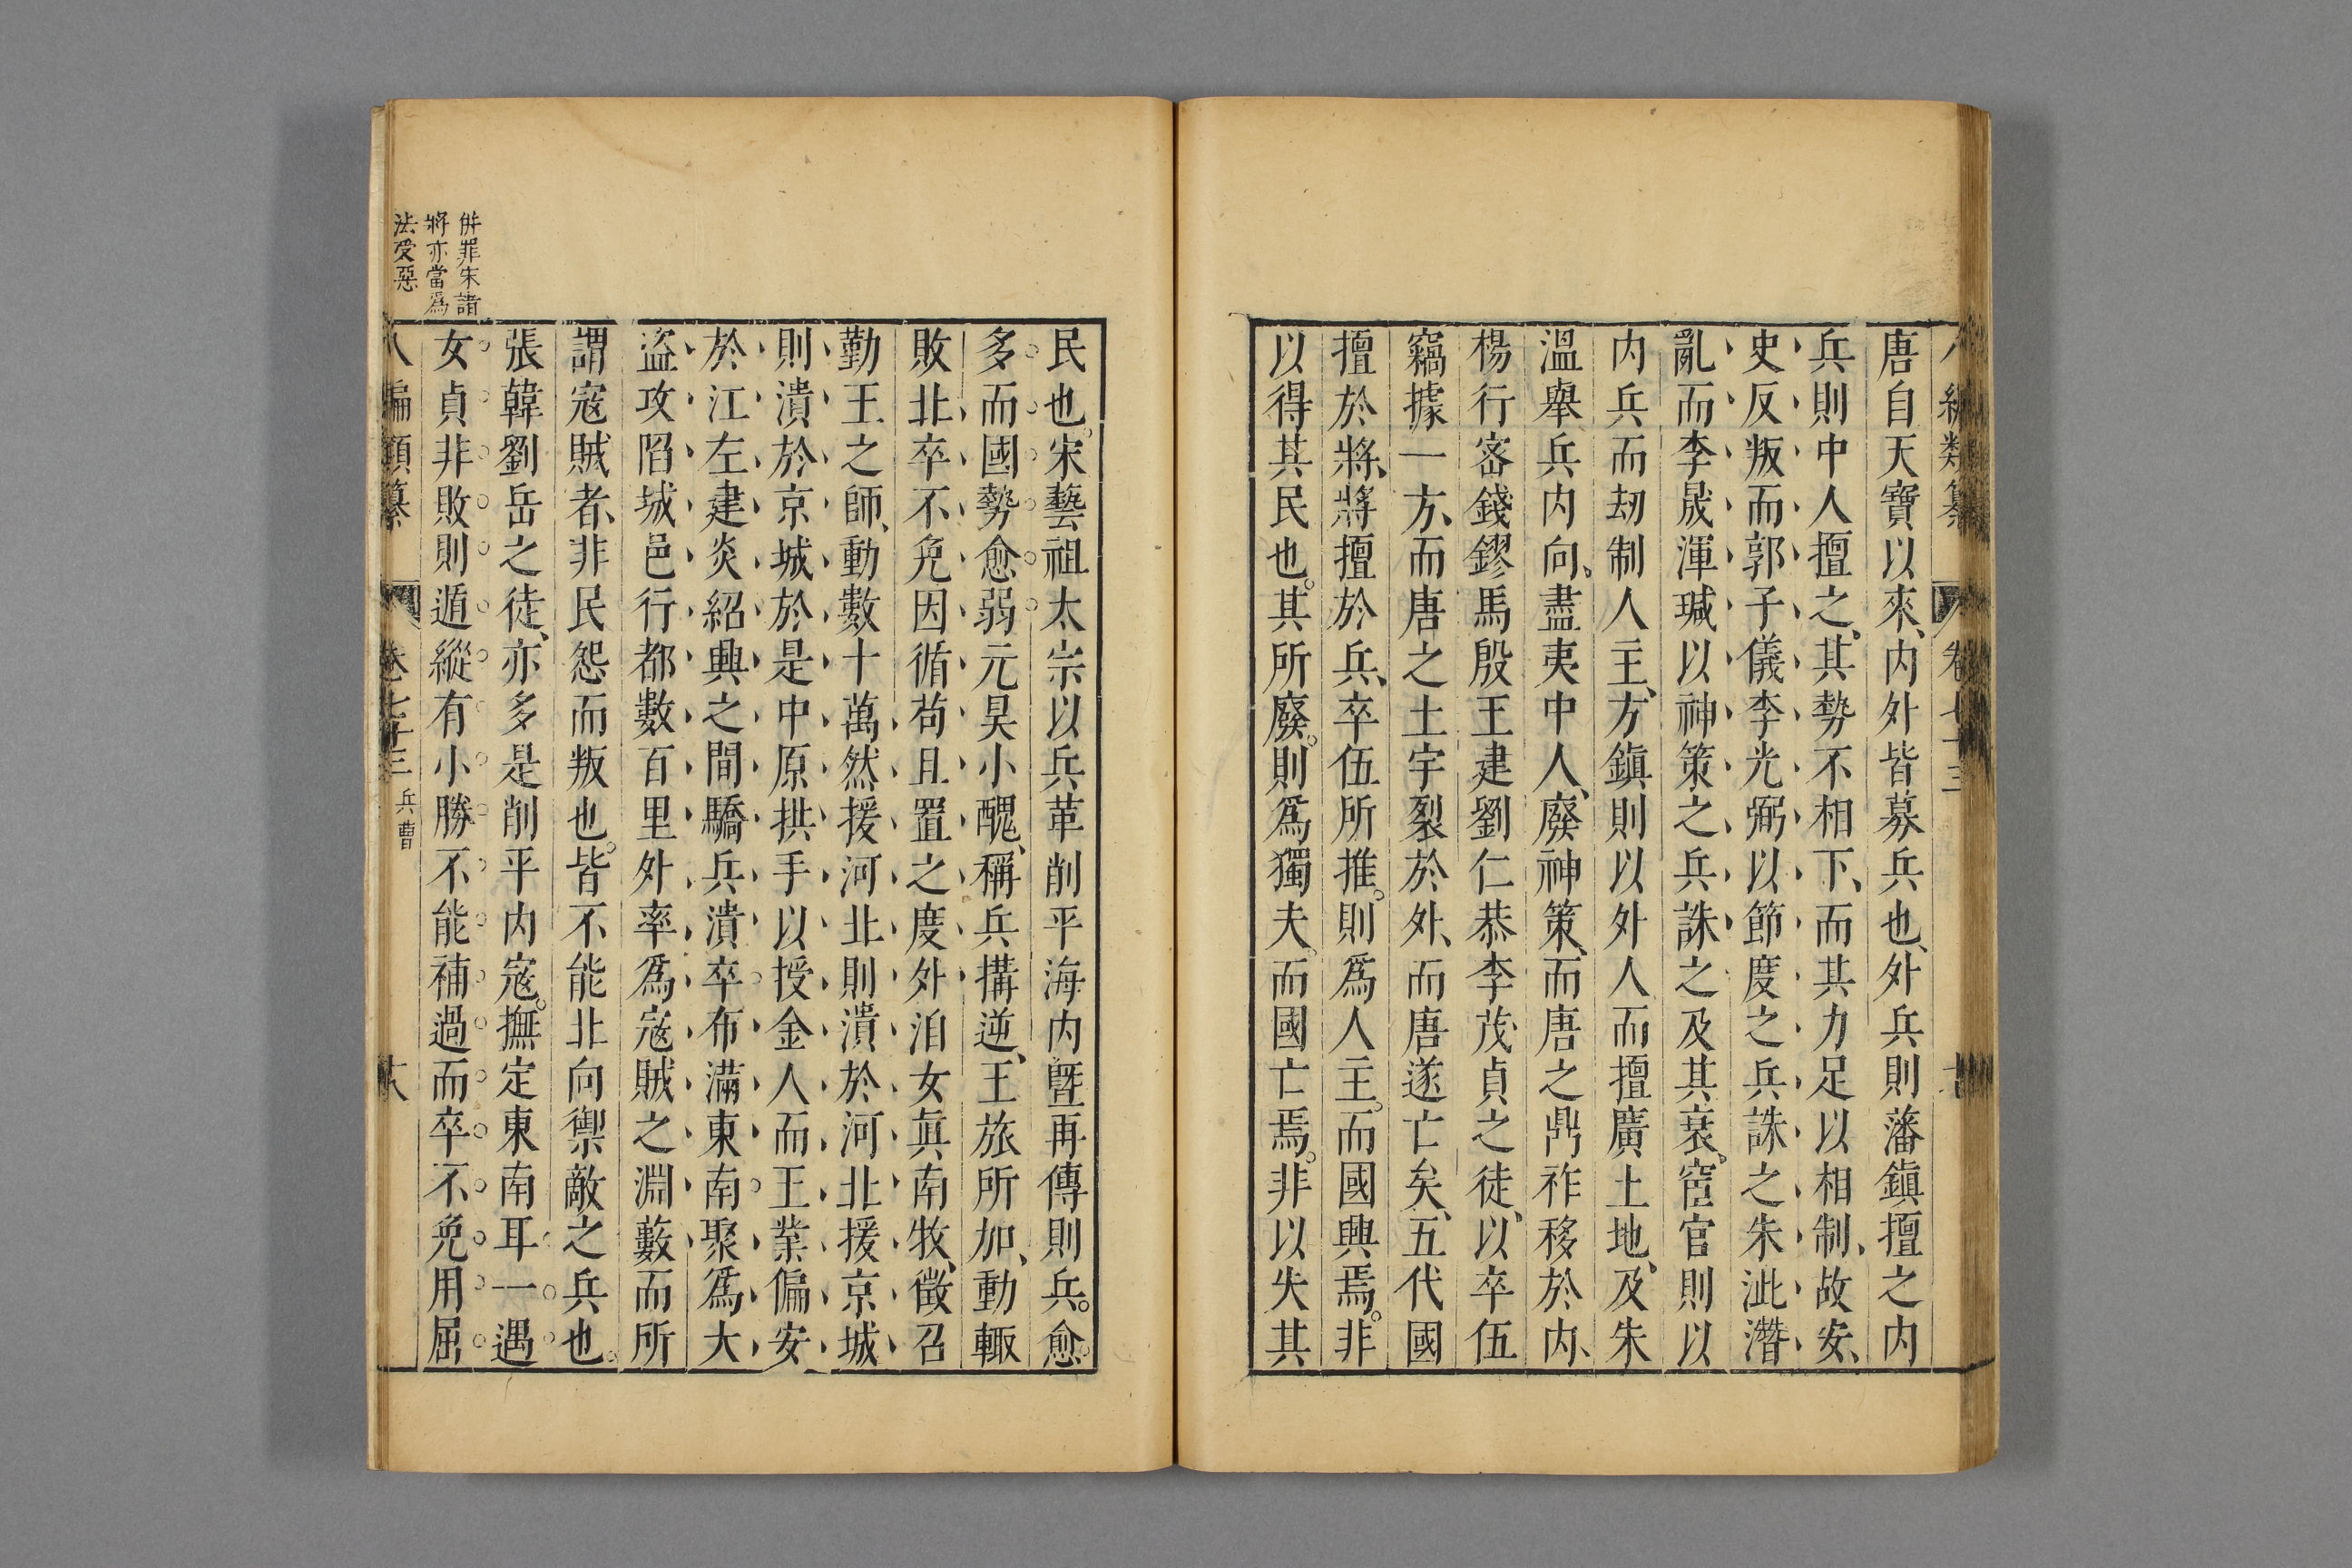 唐自天寶以來、內外皆募兵也、外兵則藩鎭擅之內
兵則中人擅之、其勢不相下、而其力足以相制、故安、
史反叛而郭子儀李光弼以節度之兵誅之朱泚潛
亂而李晟渾瑊以神策之兵誅之及其衰、宦官則以
內兵而刼制人主、方鎭則以外人而擅廣土地、及朱
溫舉兵內向、盡夷中人、廢神策、而唐之鼎祚移於內、
楊行密錢鏐馬殷王建劉仁恭李茂貞之徒、以卒伍
竊據一方、而唐之土宇裂於外、而唐遂亡矣、五代國
擅於將、將擅於兵、卒伍所推。則爲人主。而國興焉。非
以得其民也。其所廢。則爲獨夫。而國亡焉。非以失其
民也。宋藝祖太宗以兵革削平海內曁再傳則兵。愈
多而國勢愈弱元昊小醜、稱兵搆逆、王旅所加、動輒
敗北、卒不免因循茍且置之度外洎女眞南牧、徵召
勤王之師、動數十萬然援河北則潰於河北援京城
則潰於京城於是中原拱手以授金人而王業偏安
於江左建炎紹興之間驕兵潰卒布滿東南聚爲大
盜攻陷城邑行都數百里外率爲寇賊之淵藪而所
謂寇賊者、非民怨而叛也。皆不能北向禦敵之兵也。
張韓劉岳之徒、亦多是削平內寇。撫定東南耳一遇
女貞非敗則遁縱有小勝不能補過而卒不免用屈
併罪宋諸
將亦當爲
法受惡
八編類纂 卷七十三 兵曹